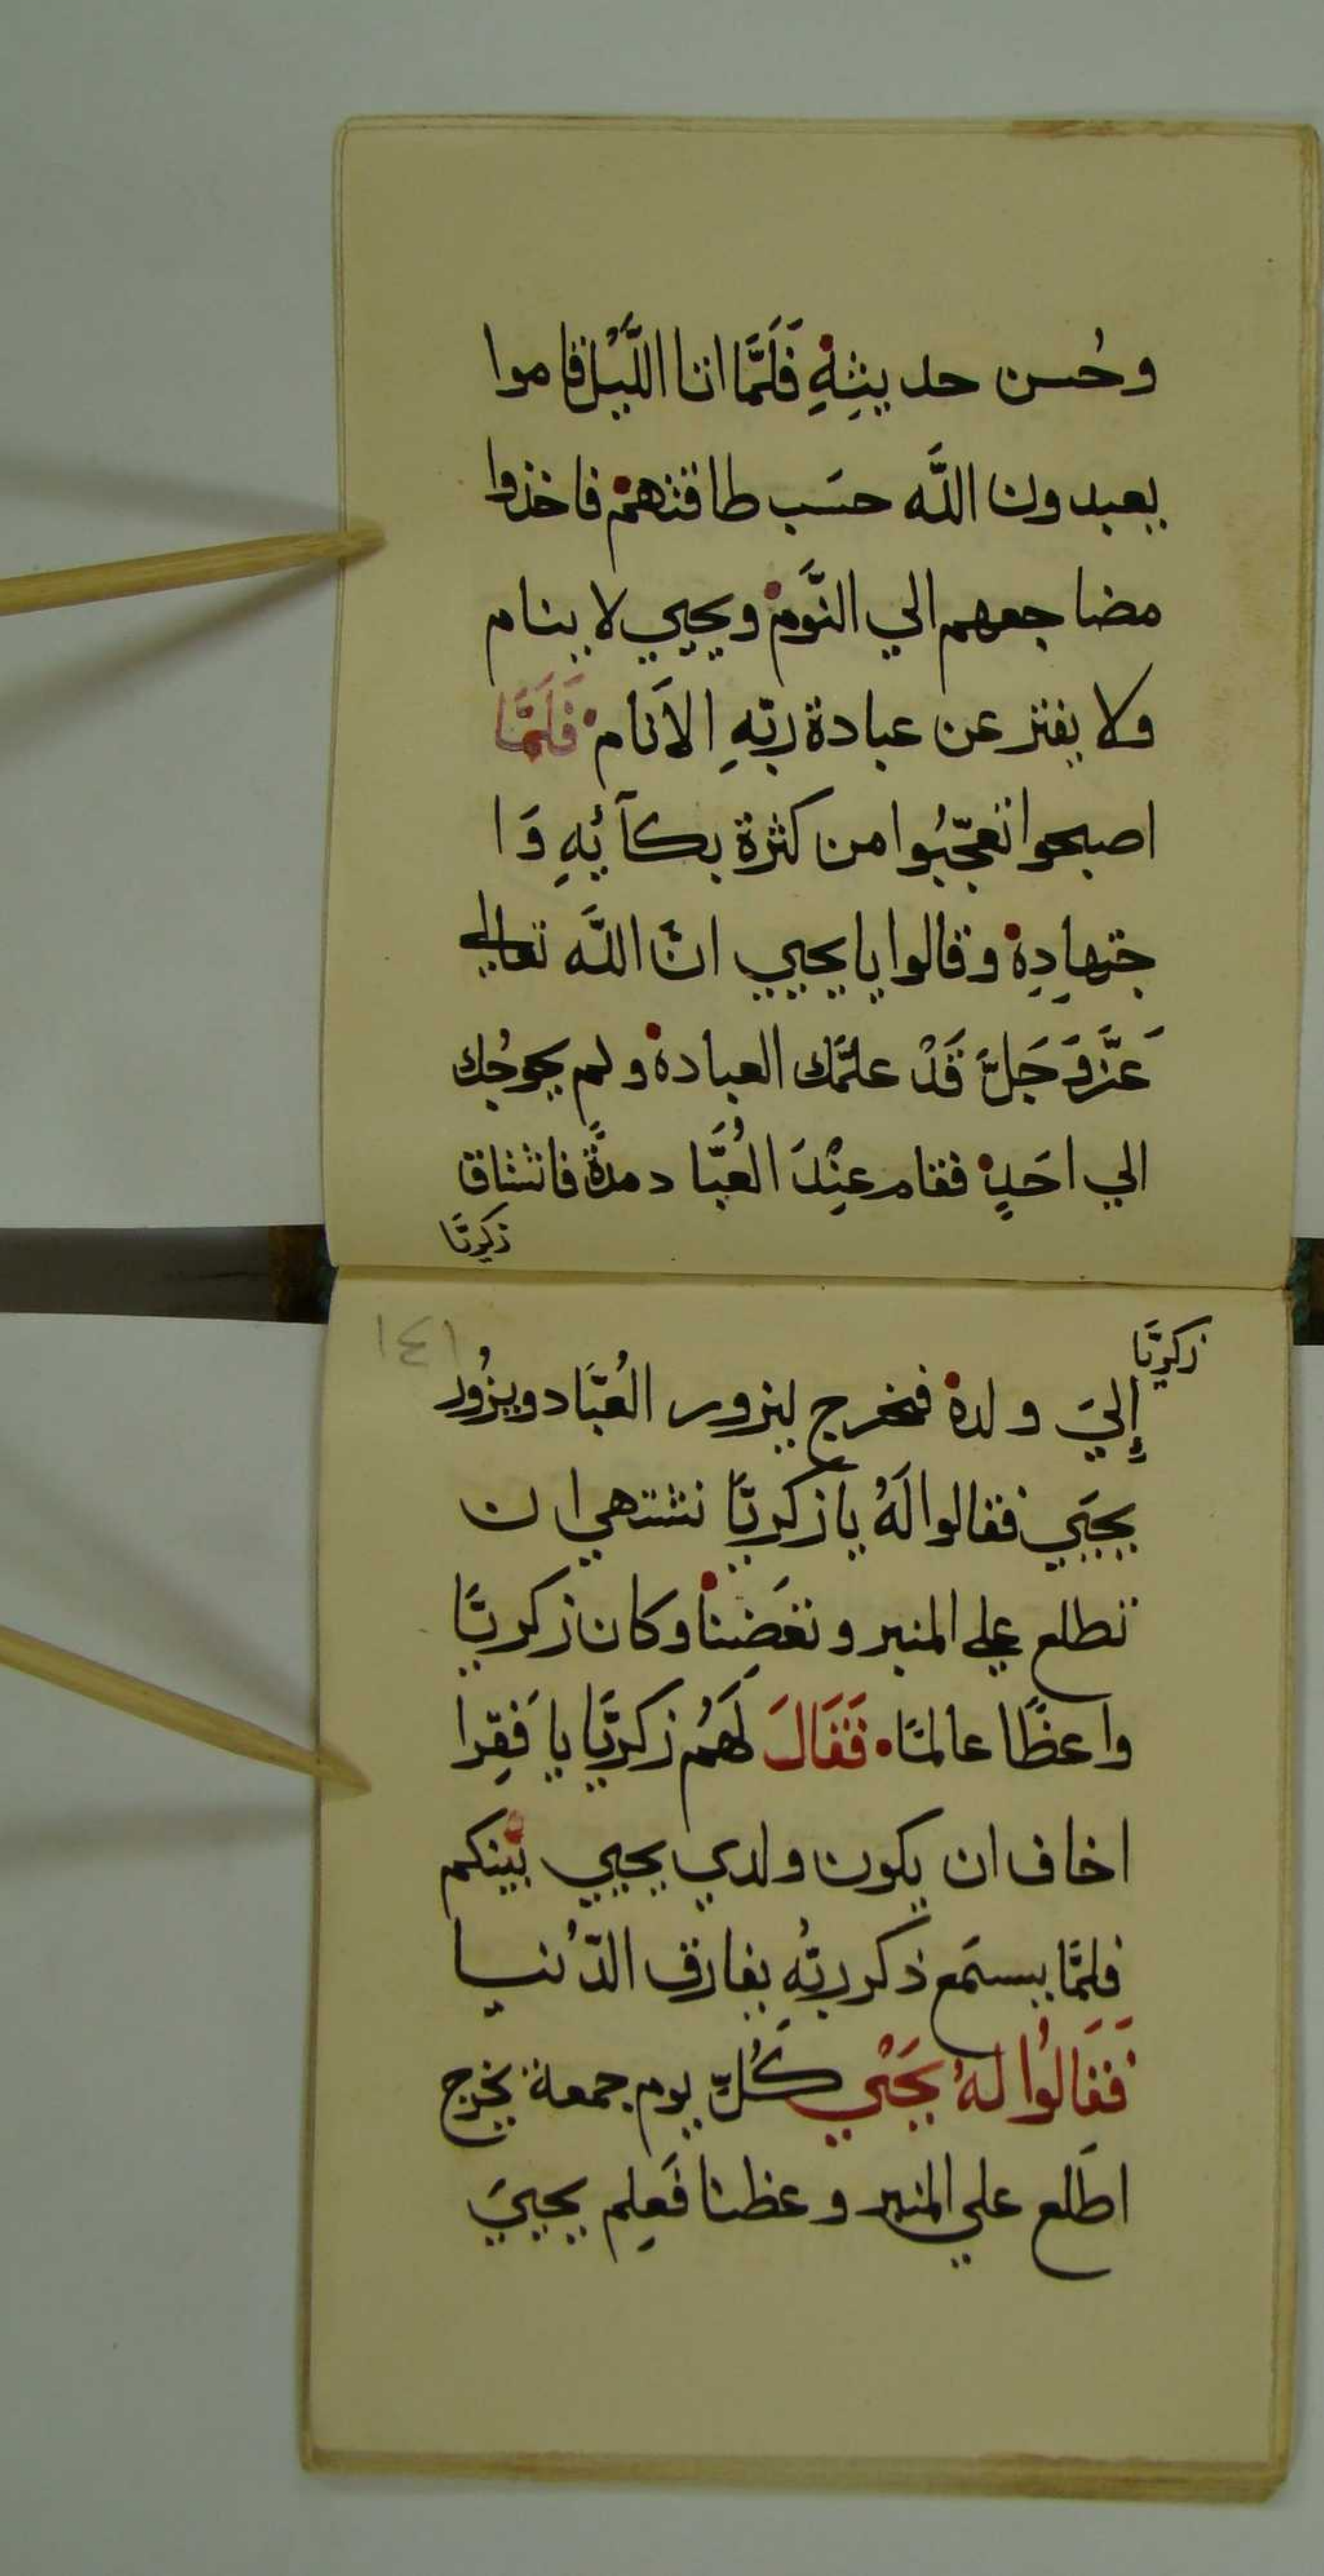 وحُسن حديثِهِ فَلَمَّا اتا اللَّيْل قاموا
يعبدون اللَّه حسَب طاقتهم فاخذوا
مضاجعهم الي النَّوم ويحيي لا ينام
ولا يفتر عن عبادة ربّهِ الاَنام فَلَمَّا
اصبحوا تعجّبُوا من كثرة بكآئِهِ وَا
جتهادِه وقالوا يا يحيي انّ اللَّه تعالي
عَزَّوَجَلَّ قَدْ علمَّك العبادة ولم يحوجُك
الي احَدٍ فقام عنِْدَ العُبَّاد مدةً فاشتاق
زكريَّا
١٤١
زكريَّا
إِليَ ولده فخرج ليزور العُبَّاد ويزُور
يحيَي فقالوا لَهُ يا زكريَّا نشتهي ان
تطلع علي المنبر وتعَضنا وكان زكريَّا
واعظًا عالمًا فَقَالَ لَهُم زكريَّا يا فَقِرا
اخاف ان يكون ولدي يحيي بينكم
فلمَّا يسمَع ذكر ربّهُِ يفارق الدّنُيا
فَقَالوُا لهُ يَحْيَي كُلّ يوم جمعة يخرج
اطَلع علي المنبر وعظنا فَعلِم يحييَ